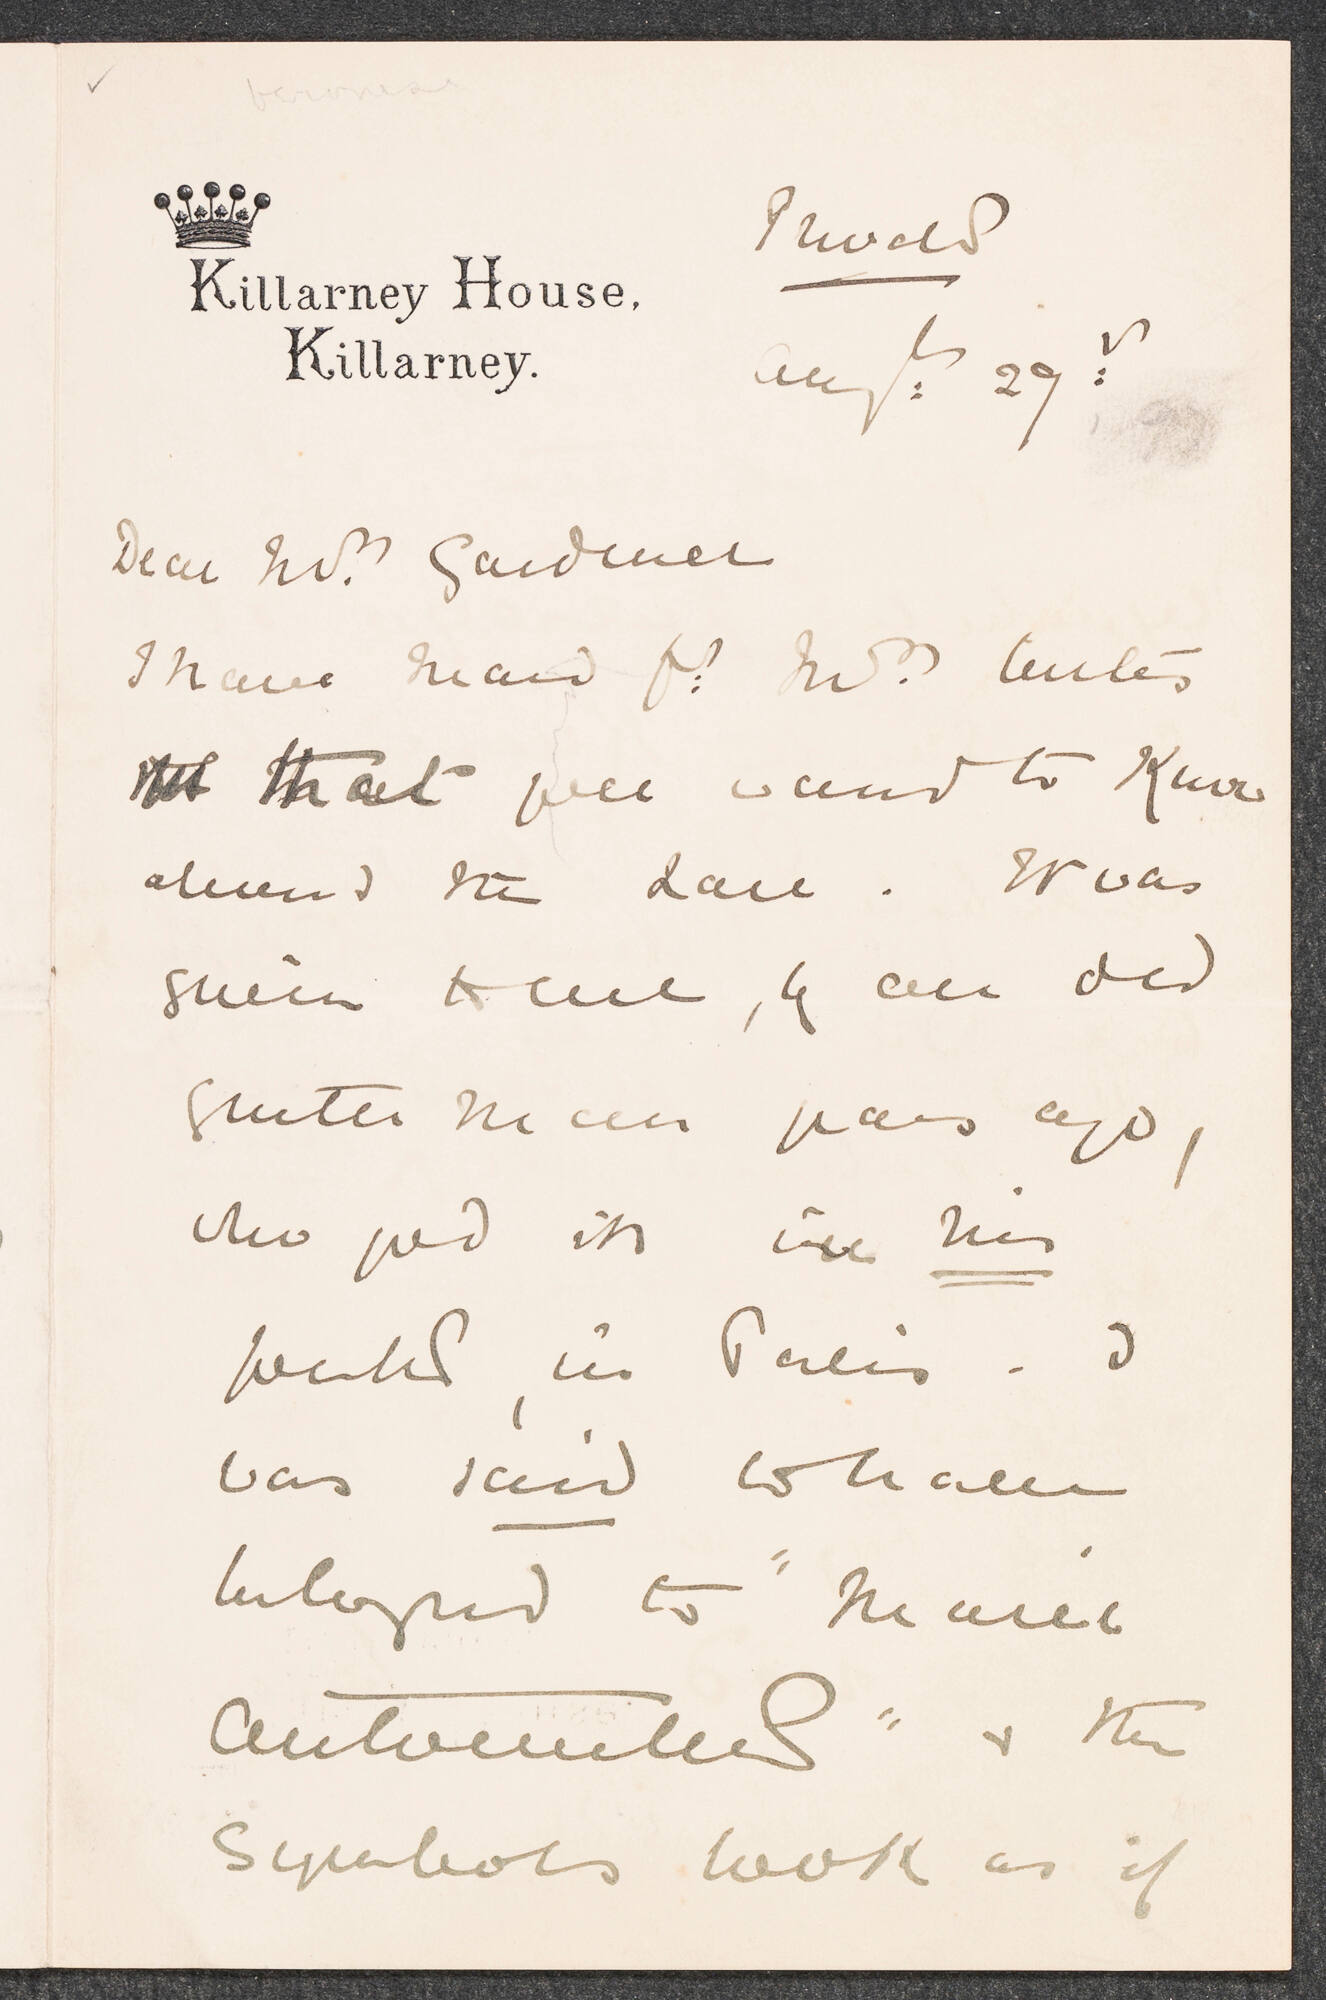 veronese
Killarney House,
Killarney.
Augst: 29th:
Dear Mrs. Gardner
I have heard fr: Mrs. Curtis
that you want to know
about the Lace. It was
given to me, by an old
gentleman years ago,
who got it in his
youth, in Paris. I
was said to have
belonged to "Marie
Antoinette" & the
Symbols look as if